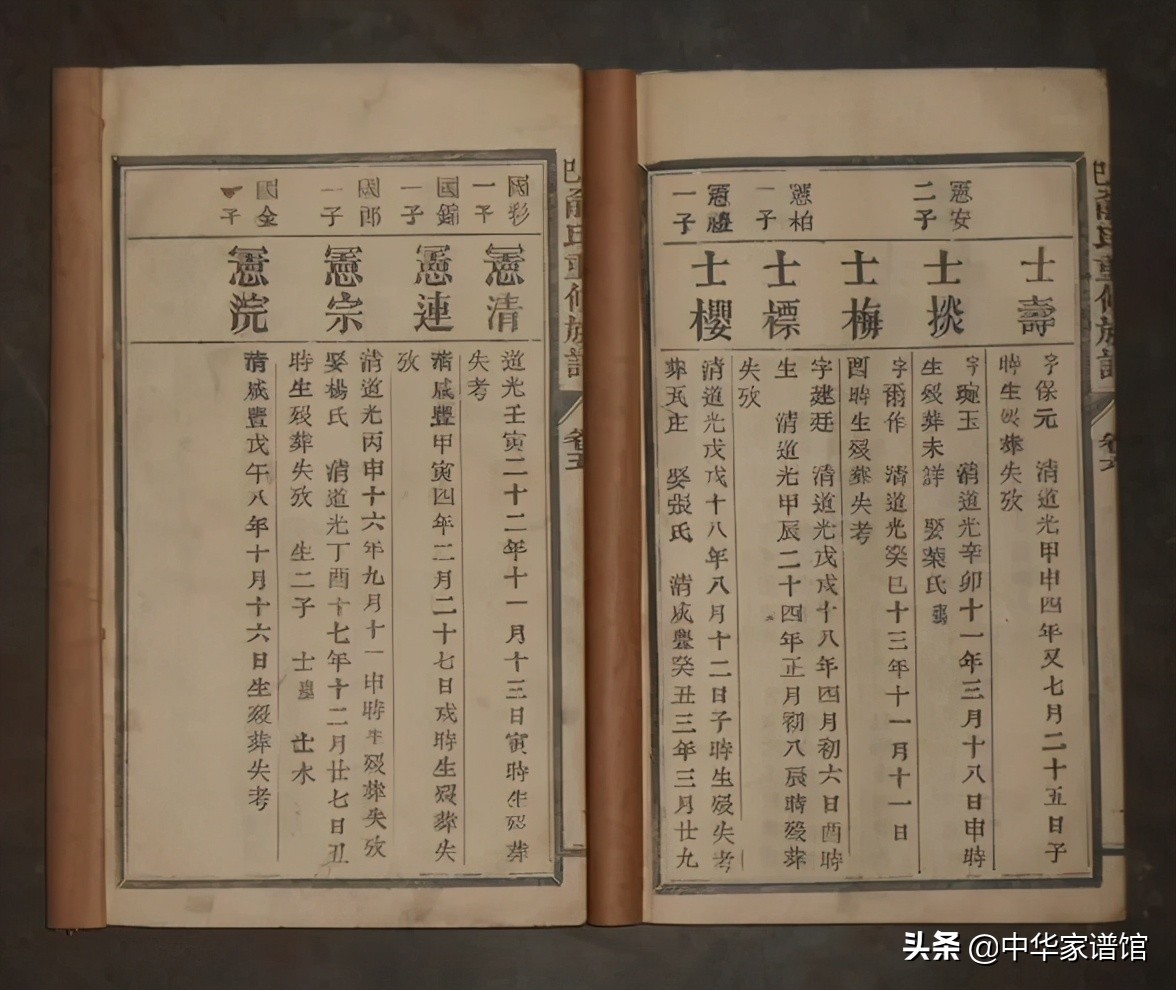 士壽
字保元　清道光甲申四年又七月二十五日子
時生歿葬失攷
憲安
二子
士掞
字琬玉　清道光辛卯十一年三月十八日申時
生歿葬未詳　娶葉氏
士梅
字爾作　清道光癸巳十三年十一月十一日
酉時生歿葬失考
憲柏
一子
士標
字建廷　清道光戊戌十八年四月初六日酉時
生　清道光甲辰二十四年正月初八辰時歿葬
失攷
憲
一子
士櫻
清道光戊戌十八年八月十二日子時生歿失考
葬瓦庄　娶張氏　清咸豐癸丑三年三月廿九
氏重修族譜
卷六
國彩
一子
憲清
道光壬寅二十二年十一月十三日寅時生歿葬
失考
國錦
一子
憲連
清咸豐甲寅四年二月二十七日戌時生歿葬失
攷
國郎
一子
憲宗
清道光丙申十六年九月十一申時生歿葬失攷
娶楊氏　清道光丁酉十七年十二月廿七日丑
時生歿葬失攷　生二子　士　士木
國金
一子
憲浣
清咸豐戊午八年十月十六日生歿葬失考
氏重修族譜
卷五
头条 @中华家谱馆